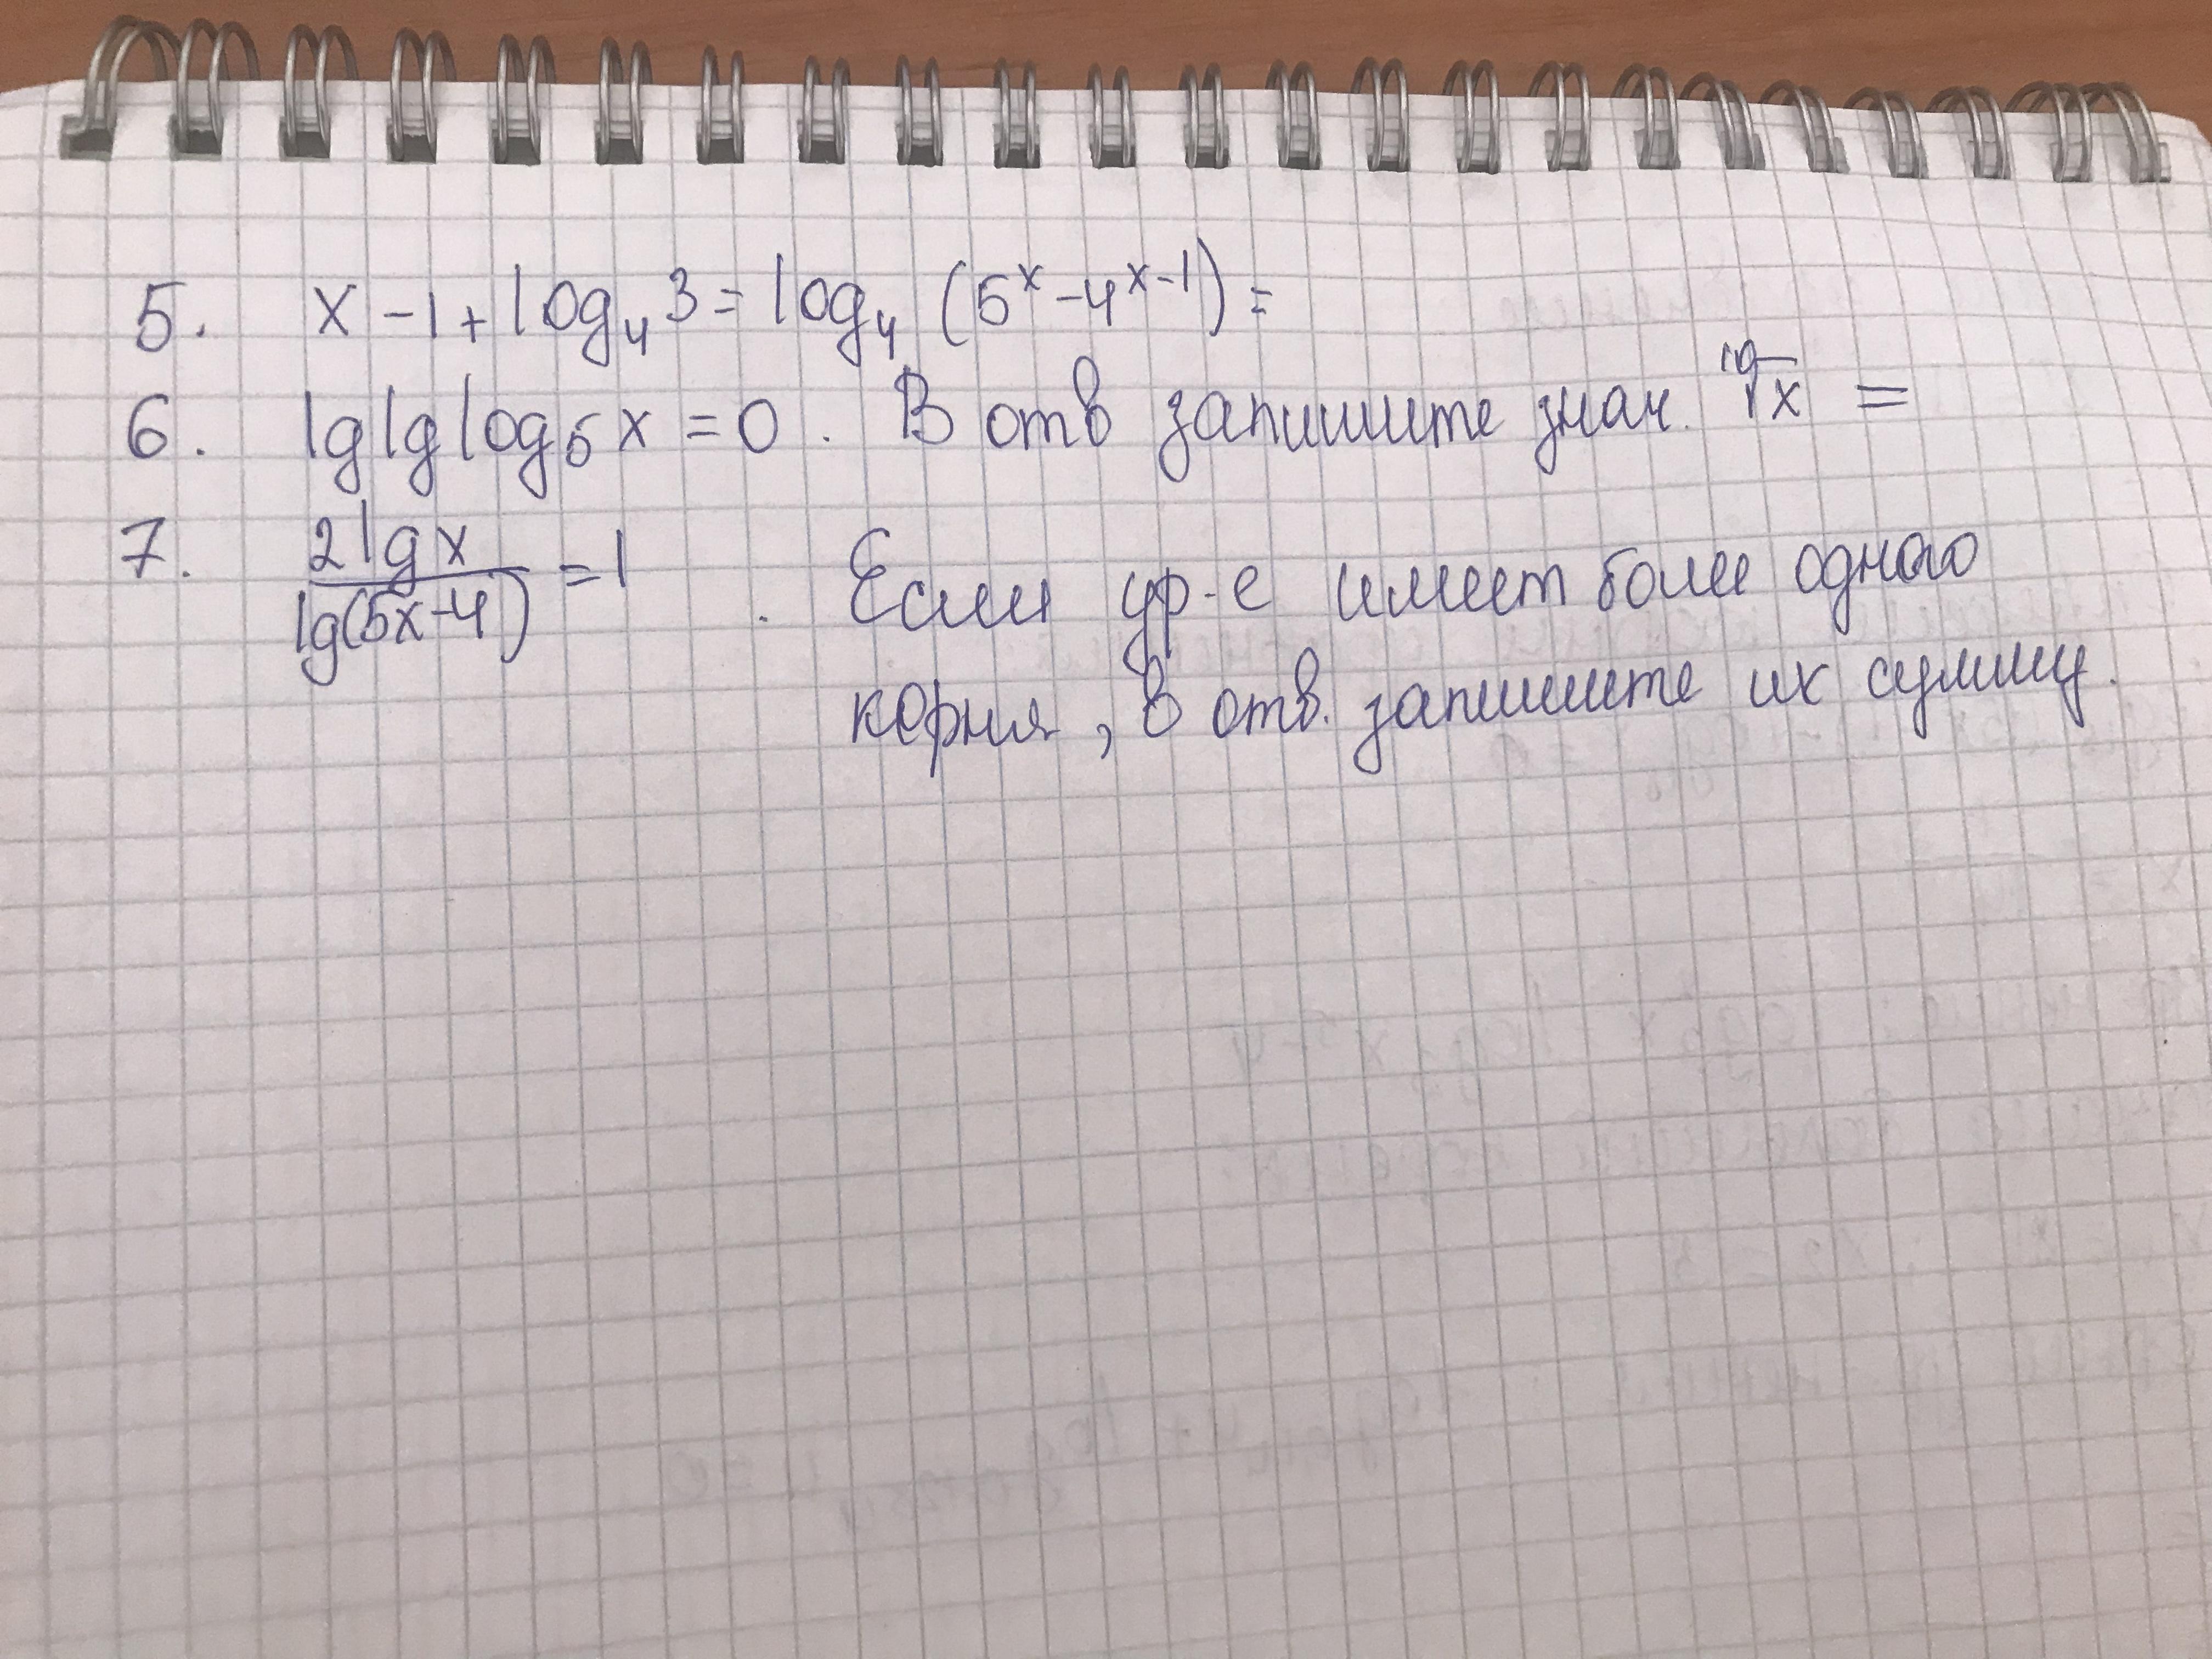 5. x - 1 + log₄ 3 = log₄ (5ˣ - 4ˣ⁻¹) =
6. lg lg log₅ x = 0 . В отв запишите знач. ¹⁰√x =
7. 2lg x / lg(5x-4) = 1 . Если ур-е имеет более одного
корня, в отв. запишите их сумму.